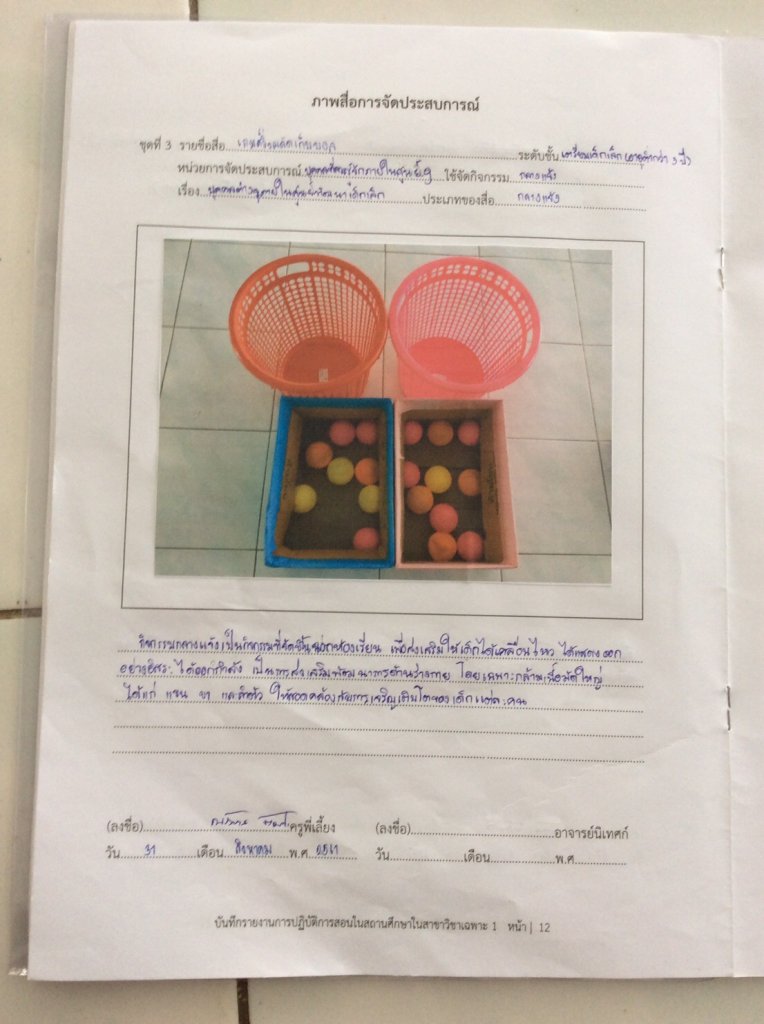 ภาพสื่อการจัดประสบการณ์
ชุดที่ 3 รายชื่อสื่อ ระดับชั้น เตรียมเด็กเล็ก (อายุต่ำกว่า 3 ปี)
หน่วยการจัดประสบการณ์ บุคคลที่ควรรู้จักภายในศูนย์ๆ ใช้จัดกิจกรรม กลางแจ้ง
เรื่อง บุคคลต่างๆภายในศูนย์พัฒนาเด็กเล็ก ประเภทของสื่อ กลางแจ้ง
กิจกรรมกลางแจ้งเป็นกิจกรรมที่จัดขึ้นนอกห้องเรียน เพื่อส่งเสริมให้เด็กได้เคลื่อนไหว ได้แสดงออก
อย่างอิสระ ได้ออกกำลัง เป็นการส่งเสริมพัฒนาการด้านร่างกาย โดยเฉพาะกล้ามเนื้อมัดใหญ่
ได้แก่ แขน ขา และลำตัว ให้สอดคล้องกับการเจริญเติบโตของเด็กแต่ละคน
(ลงชื่อ) ครูพี่เลี้ยง (ลงชื่อ) อาจารย์นิเทศก์
วัน 31 เดือน สิงหาคม พ.ศ. 2561 วัน เดือน พ.ศ
บันทึกรายงานการปฏิบัติการสอนในสถานศึกษาในสาขาวิชาเฉพาะ 1 หน้า | 12